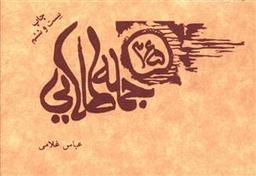 چاپ
بیست و ششم
جمله طلایی
عباس غلامی